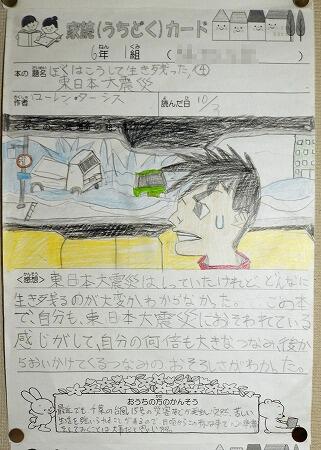 家読(うちどく)カード
6年 1組 (
本の題名 ぼくはこうして生き残った!④
東日本大震災
作者 ローレン・ターシス 読んだ日 10/
<感想> 東日本大震災は、しっていたけれど、どんなに
生き残るのが大変かわからなかった。 この本
で、自分も、東日本大震災におそわれている
感じがして、自分の何倍も大きなつなみ、後か
らおいかけてくるつなみのおそろしさがわかった。
おうちの方のかんそう
最近でも千葉の台風15号の災害など 突然、苦しい